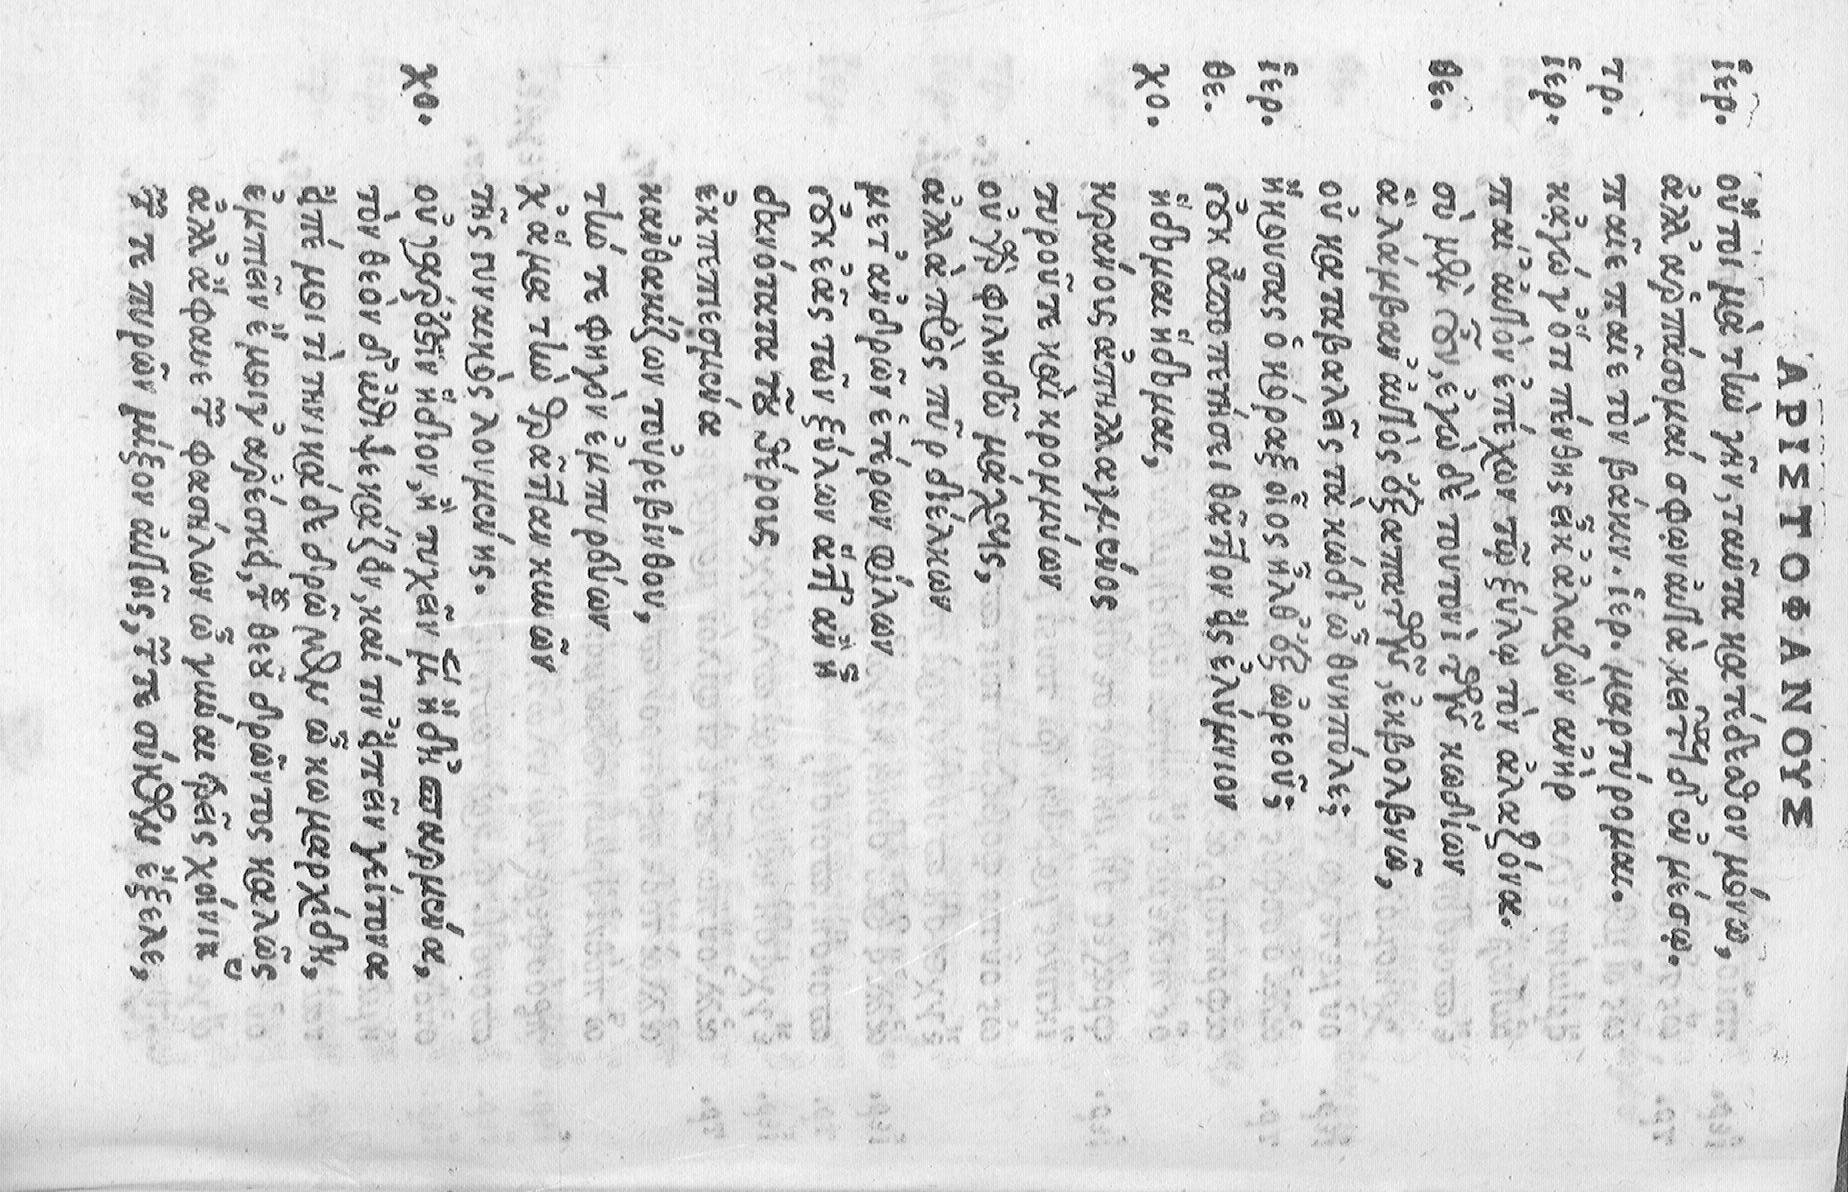 ΑΡΙΣΤΟΦΑΝΟΥΣ
ἱερ. οὔτοι μὰ τὴν γῆν, ταῦτα κατέδεσθον μόνω,
ἀλλ' ἁρπάσομαι σφῶν αὐτὰ, κεῖται δ' ἐν μέσῳ.
τρ. παῖε παῖε τὸν βάκιν. ἱερ. μαρτύρομαι.
ἱερ. κἄγωγ' ὅτι τένθης εἶ κ' ἀλαζὼν ἀνὴρ
παῖ' αὐτὸν ἐπέχων τῷ ξύλῳ τὸν ἀλαζόνα.
θε. σὺ μὲν οὖν, ἐγὼ δὲ τουτονὶ τῶν κωδίων
ἃ 'λάμβαν' αὐτὸς ἐξαπατῶν, ἐκβολβιῶ,
οὐ καταβαλεῖς τὰ κώδι' ὦ θυηπόλε;
ἱερ. ἤκουσας ὁ κόραξ οἷος ἦλθ' ἐξ ὠρεοῦ;
θε. οὐκ ἀποπετήσει θᾶττον εἰς ἐλύμνιον
χο. ἥδομαι ἥδομαι,
κράνους ἀπηλλαγμένος
τυροῦ τε καὶ κρομμύων
οὐ γὰρ φιληδῶ μάχαις,
ἀλλὰ πρὸς πῦρ διέλκων
μετ' ἀνδρῶν ἑτέρων φίλων
ἐκκέας τῶν ξύλων ἅττ' ἂν ᾖ
δανότατα τοῦ θέρους
ἐκπεπιεσμένα
κἀνθακίζων τοὐρεβίνθου,
τήν τε φηγὸν ἐμπυρεύων
χ' ἅμα τὴν θρᾷτταν κινῶν
τῆς γυναικὸς λουμένης.
χο. οὐ γὰρ ἔσθ' ἥδιον, ἢ τυχεῖν μὲν ἤδη 'σπαρμένα,
τὸν θεὸν δ' ἐπιψεκάζειν, καί τιν' εἰπεῖν γείτονα
εἰπέ μοι τὶ τηνικάδε δρῶμεν ὦ κωμαρχίδη,
ἐμπιεῖν ἔμοιγ' ἀρέσκει, τοῦ θεοῦ δρῶντος καλῶς
ἀλλ' ἄφαυε τῶν φασήλων ὦ γύναι τρεῖς χοίνικας
τῶν τε πυρῶν μίξον αὐτοῖς, τῶν τε σύκων ἔξελε,